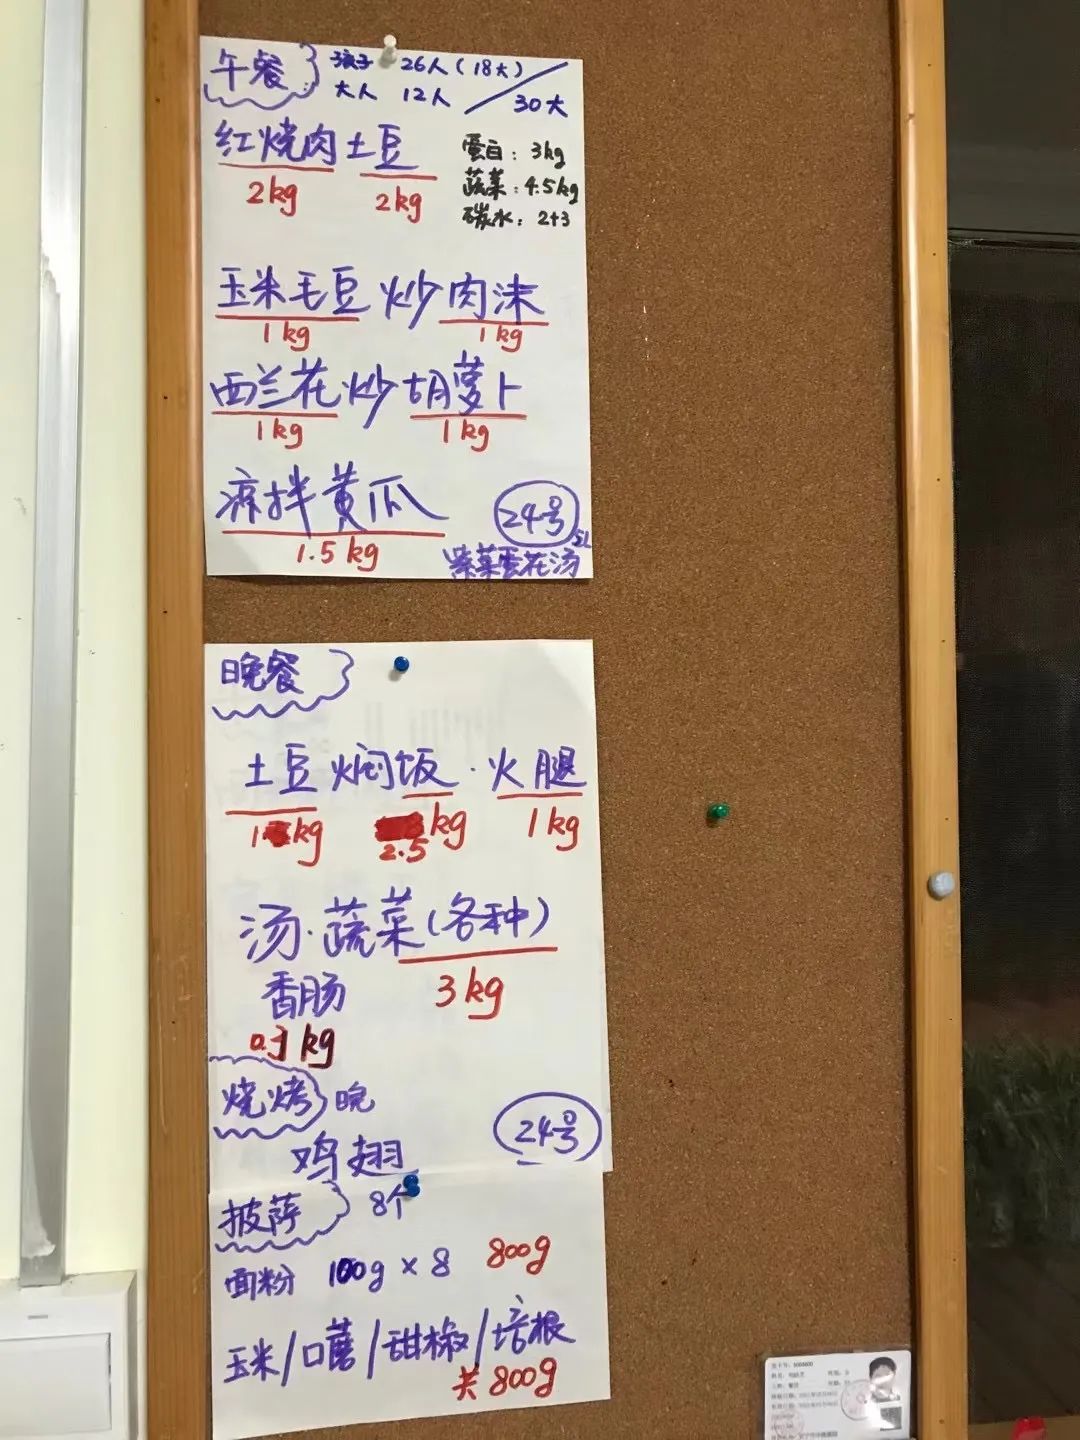 午餐 孩子 26人(18大)
大人 12人 / 30大
红烧肉土豆
2kg 2kg
蛋白: 3kg
蔬菜: 4.5kg
碳水: 2+3
玉米毛豆炒肉沫
1kg 1kg
西兰花炒胡萝卜
1kg 1kg
凉拌黄瓜
1.5kg
24号
5L
紫菜蛋花汤
晚餐
土豆焖饭·火腿
1 kg 2.5 kg 1kg
汤·蔬菜(各种)
香肠 3kg
kg
烧烤 晚
鸡翅
24号
披萨 8个
面粉 100g×8 800g
玉米/口蘑/甜椒/培根
共 800g